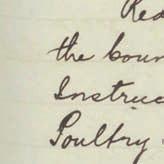 Red
the coun
Instruc
Poultry